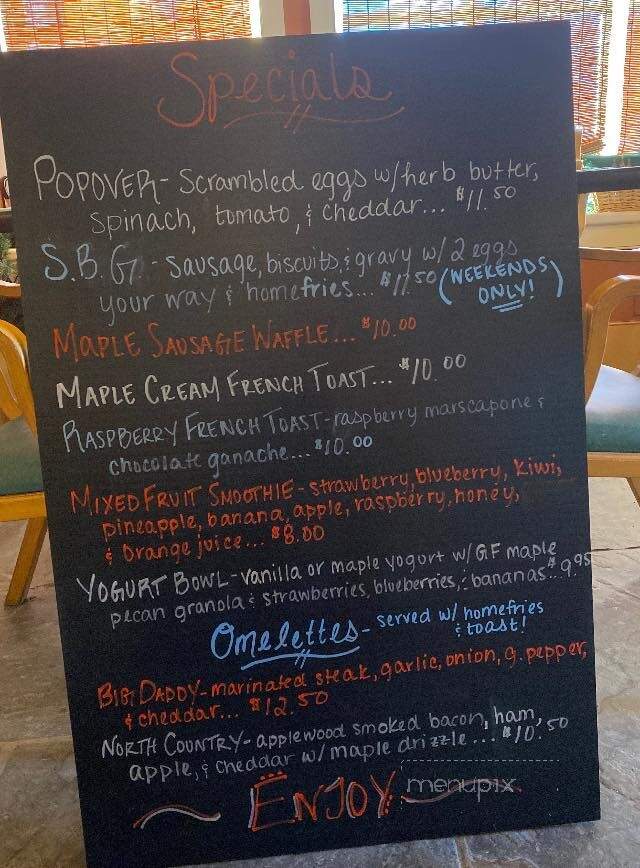 Specials
POPOVER- Scrambled eggs w/herb butter,
spinach, tomato, & cheddar... $11.50
S.B.G. - sausage, biscuits, & gravy w/ 2 eggs
your way & homefries... $11.50 (WEEKENDS
ONLY!)
MAPLE SAUSAGE WAFFLE... $10.00
MAPLE CREAM FRENCH TOAST... $10.00
RASPBERRY FRENCH TOAST-raspberry marscapone &
chocolate ganache... $10.00
MIXED FRUIT SMOOTHIE - strawberry, blueberry, kiwi,
pineapple, banana, apple, raspberry, honey,
& orange juice... $8.00
YOGURT BOWL-vanilla or maple yogurt w/GF maple
pecan granola & strawberries, blueberries, & bananas.. $9.95
Omelettes- served w/ homefries
& toast!
BIG DADDY-marinated steak, garlic, onion, g. pepper,
& cheddar... $12.50
NORTH COUNTRY- applewood smoked bacon, ham,
apple, & cheddar w/ maple drizzle... $10.50
ENJOY
menupix